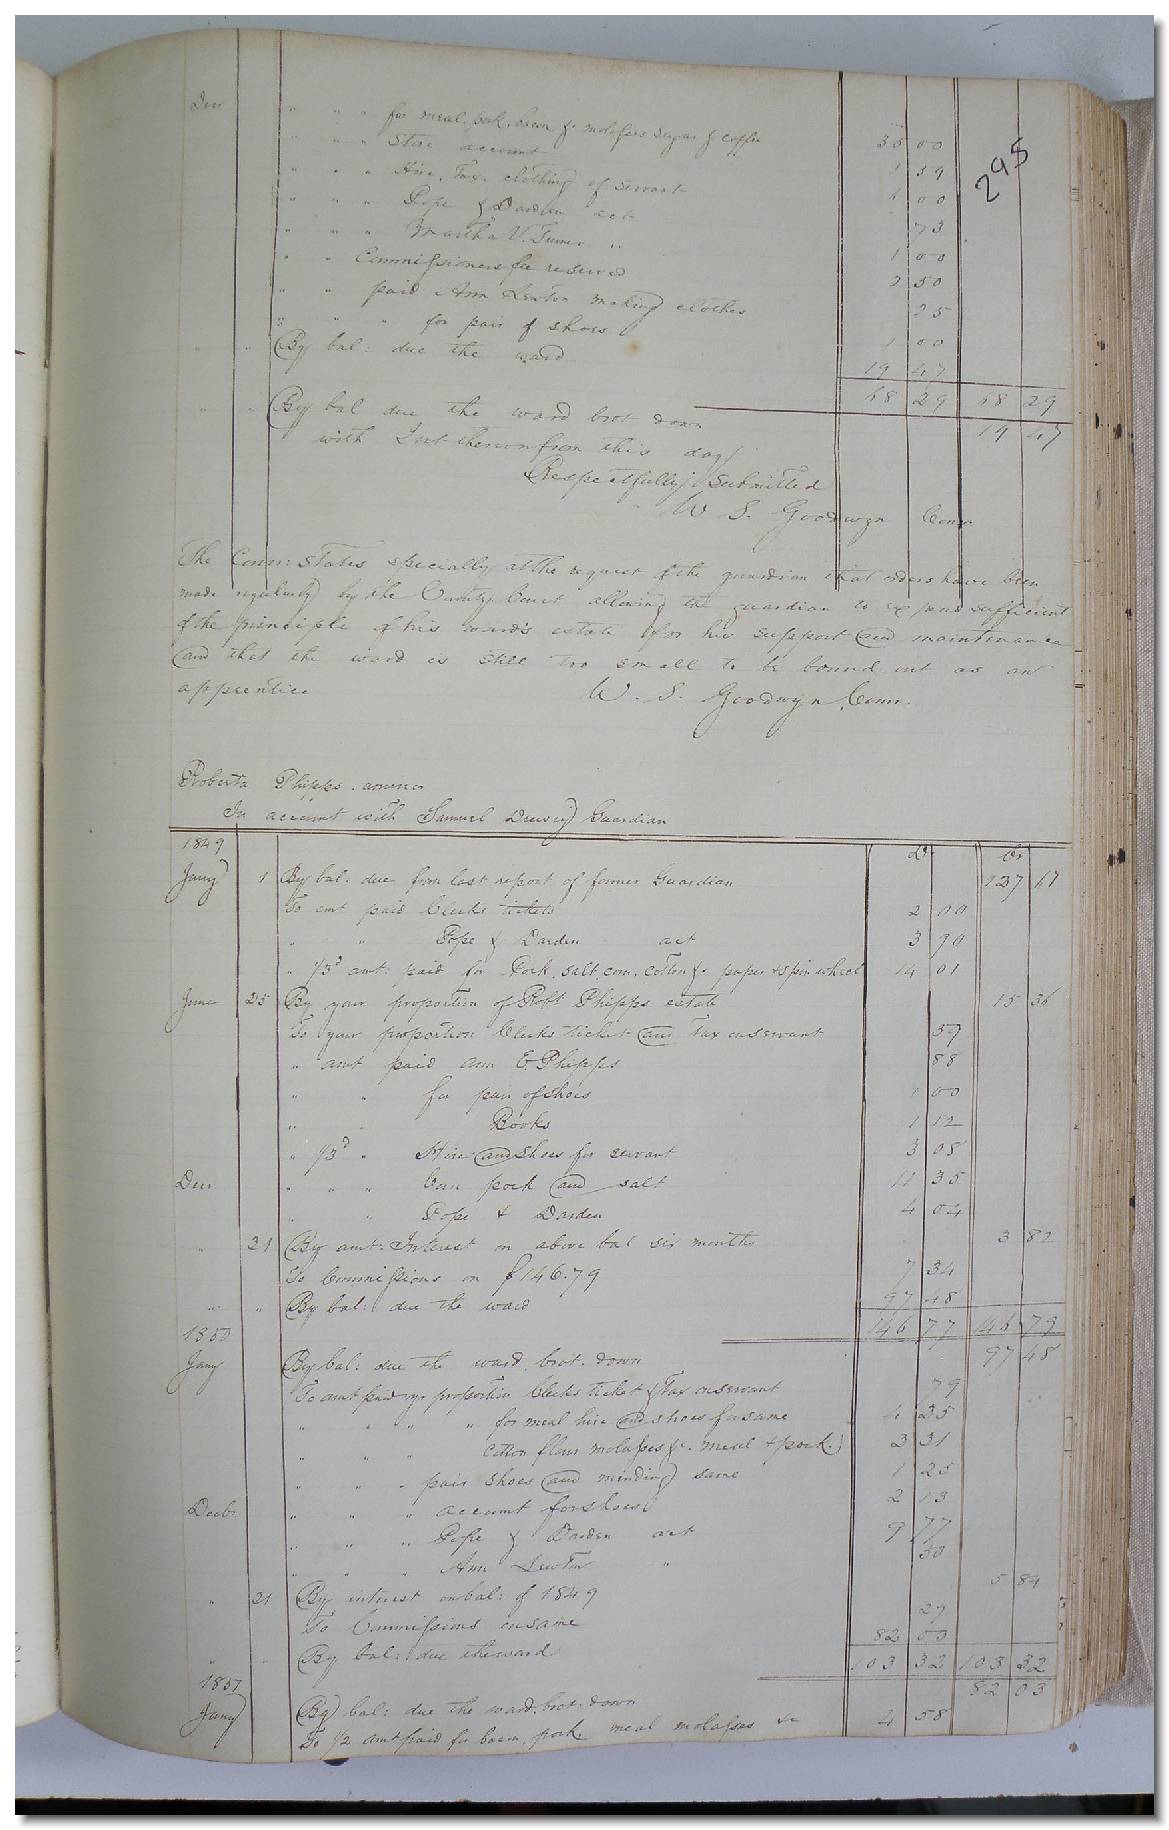 295
Decr " " " for meal, pork, bacon &c molasses sugar & coffee 35 00
" " " Store account 1 59
" " " Hire, Tax, clothing of servant 00
" " " Pope & Darden act 73
" " " Martha V. Turner " 1 00
" " Commissioners fee reserved 2 50
" " paid Ann Lewton making clothes 25
" " " for pair of shoes 1 00
" " By bal: due the ward 19 47
68 29 68 29
" " By bal due the ward brot down 19 47
with Int thereon from this day
Respectfully Submitted
W S. Goodwyn Comr
The Comr: States specially at the request of the guardian that orders have been
made regularly by the County Court allowing the guardian to expend sufficient
of the principle of his ward's estate for his support and maintenance
and that the ward is still too small to be bound out as an
apprentice W. S. Goodwyn Comr.
Roberta Phipps
In account with Samuel Drewry Guardian
1849 Dr Cr
Jany 1 By bal: due from last report of former Guardian 127 61
To amt paid Clerks tickets 2 00
" " Pope & Darden act 3 90
" 1/3d amt: paid for Pork, salt, corn, cotton &c paper & spin wheel 14 01
June 25 By your proportion of Robt Phipps estate 15 36
To your proportion Clerks ticket and Tax on servant 59
" amt paid Ann E Phipps 88
" " for pair of shoes 1 00
" " Books 1 12
" 1/3d " Hire and shoes for servant 3 08
Decr " " " Corn pork and salt 11 35
" " Pope & Darden 4 04
" 31 By amt: Interest on above bal six months 3 82
To Commissions on $146.79 7 34
" " By bal: due the ward 97 48
146 77 146 79
1850
Jany By bal: due the ward brot. down 97 48
To amt paid yr proportion Clerks ticket & Tax on servant 79
" " " " for meal hire and shoes for same 4 35
" " " Cotton flour molasses &c. meal & pork 3 31
" " " pair shoes and mending same 1 25
Decbr " " " account for shoes 2 13
" " " Pope & Darden act 9 77
" " " Ann Lewton " 30
" 31 By interest on bal: of 1849 5 84
To Commissions on same 29
" " By bal: due the ward 82 03
103 32 103 32
1851 82 03
Jany By bal: due the ward brot. down
To 1/2 amt paid for bacon, pork meal molasses &c 4 58